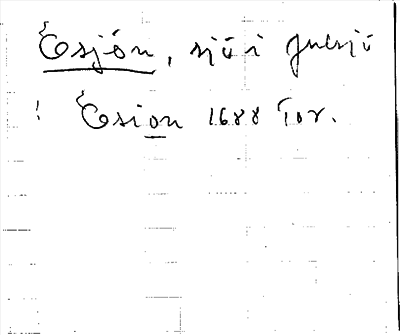 Esjön, sjö i Juksjö
! Esion 1688 Tor.